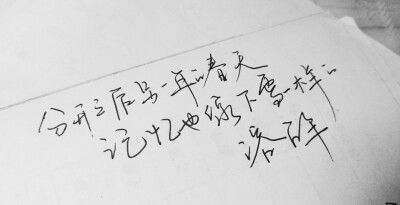 分开之后另一年的春天
记忆也像下雪一样的